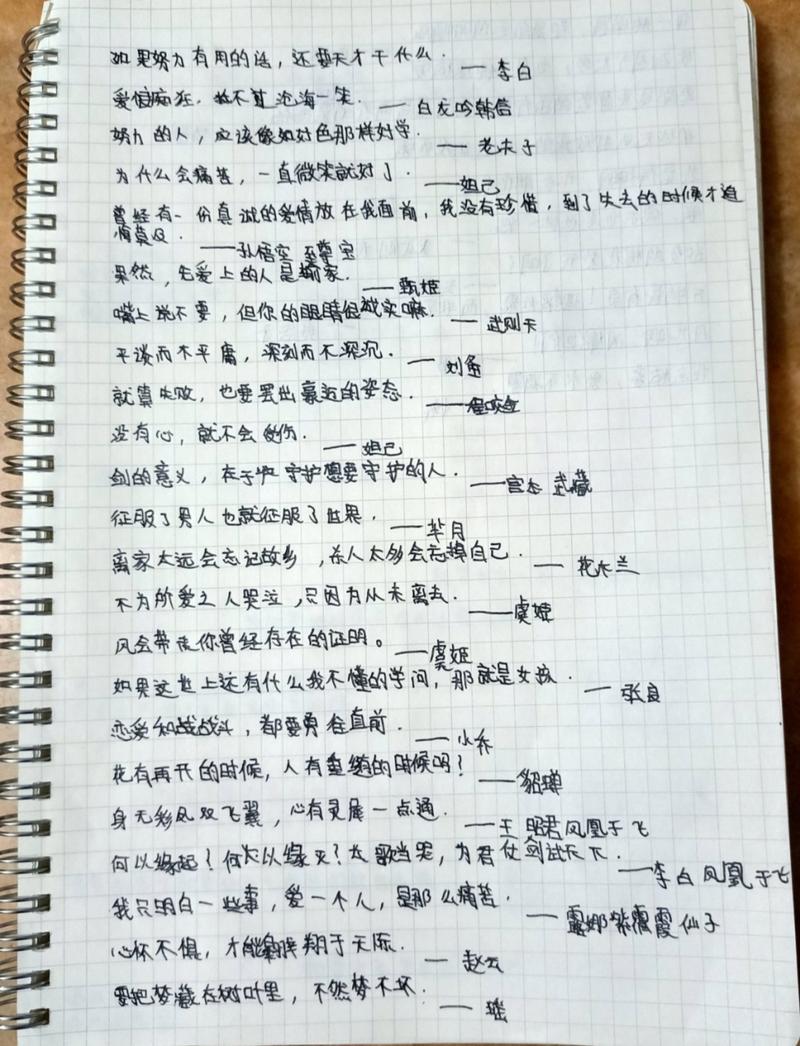 如果努力有用的话，还要天才干什么．——李白
爱恨痴狂．敌不过沧海一笑．——白龙吟韩信
努力的人，应该像好色那样好学．——老夫子
为什么会痛苦，一直微笑就好了．——妲己
曾经有一份真诚的爱情放在我面前，我没有珍惜，到了失去的时候才追
悔莫及．——孙悟空 至尊宝
果然，先爱上的人是输家．——甄姬
嘴上说不要，但你的眼睛很诚实嘛．——武则天
平淡而不平庸，深刻而不深沉．——刘备
就算失败，也要摆出豪迈的姿态．——程咬金
没有心，就不会受伤．——妲己
剑的意义，在于 守护想要守护的人．——宫本 武藏
征服了男人也就征服了世界．——芈月
离家太远会忘记故乡，杀人太多会忘掉自己．——花木兰
不为所爱之人哭泣，只因为从未离去．——虞姬
风会带走你曾经存在的证明。——虞姬
如果这世上还有什么我不懂的学问，那就是女孩．——张良
恋爱和战战斗，都要勇往直前．——小乔
花有再开的时候，人有重逢的时候吗？——貂蝉
身无彩凤双飞翼，心有灵犀一点通．——王昭君凤凰于飞
何以缘起？何以缘灭？长歌当哭，为君仗剑试天下．——李白 凤凰于飞
我只明白一些事，爱一个人，是那么痛苦．——露娜紫霞仙子
心怀不惧，才能翱翔于天际．——赵云
要把梦藏在树叶里，不然梦不坏．——瑶